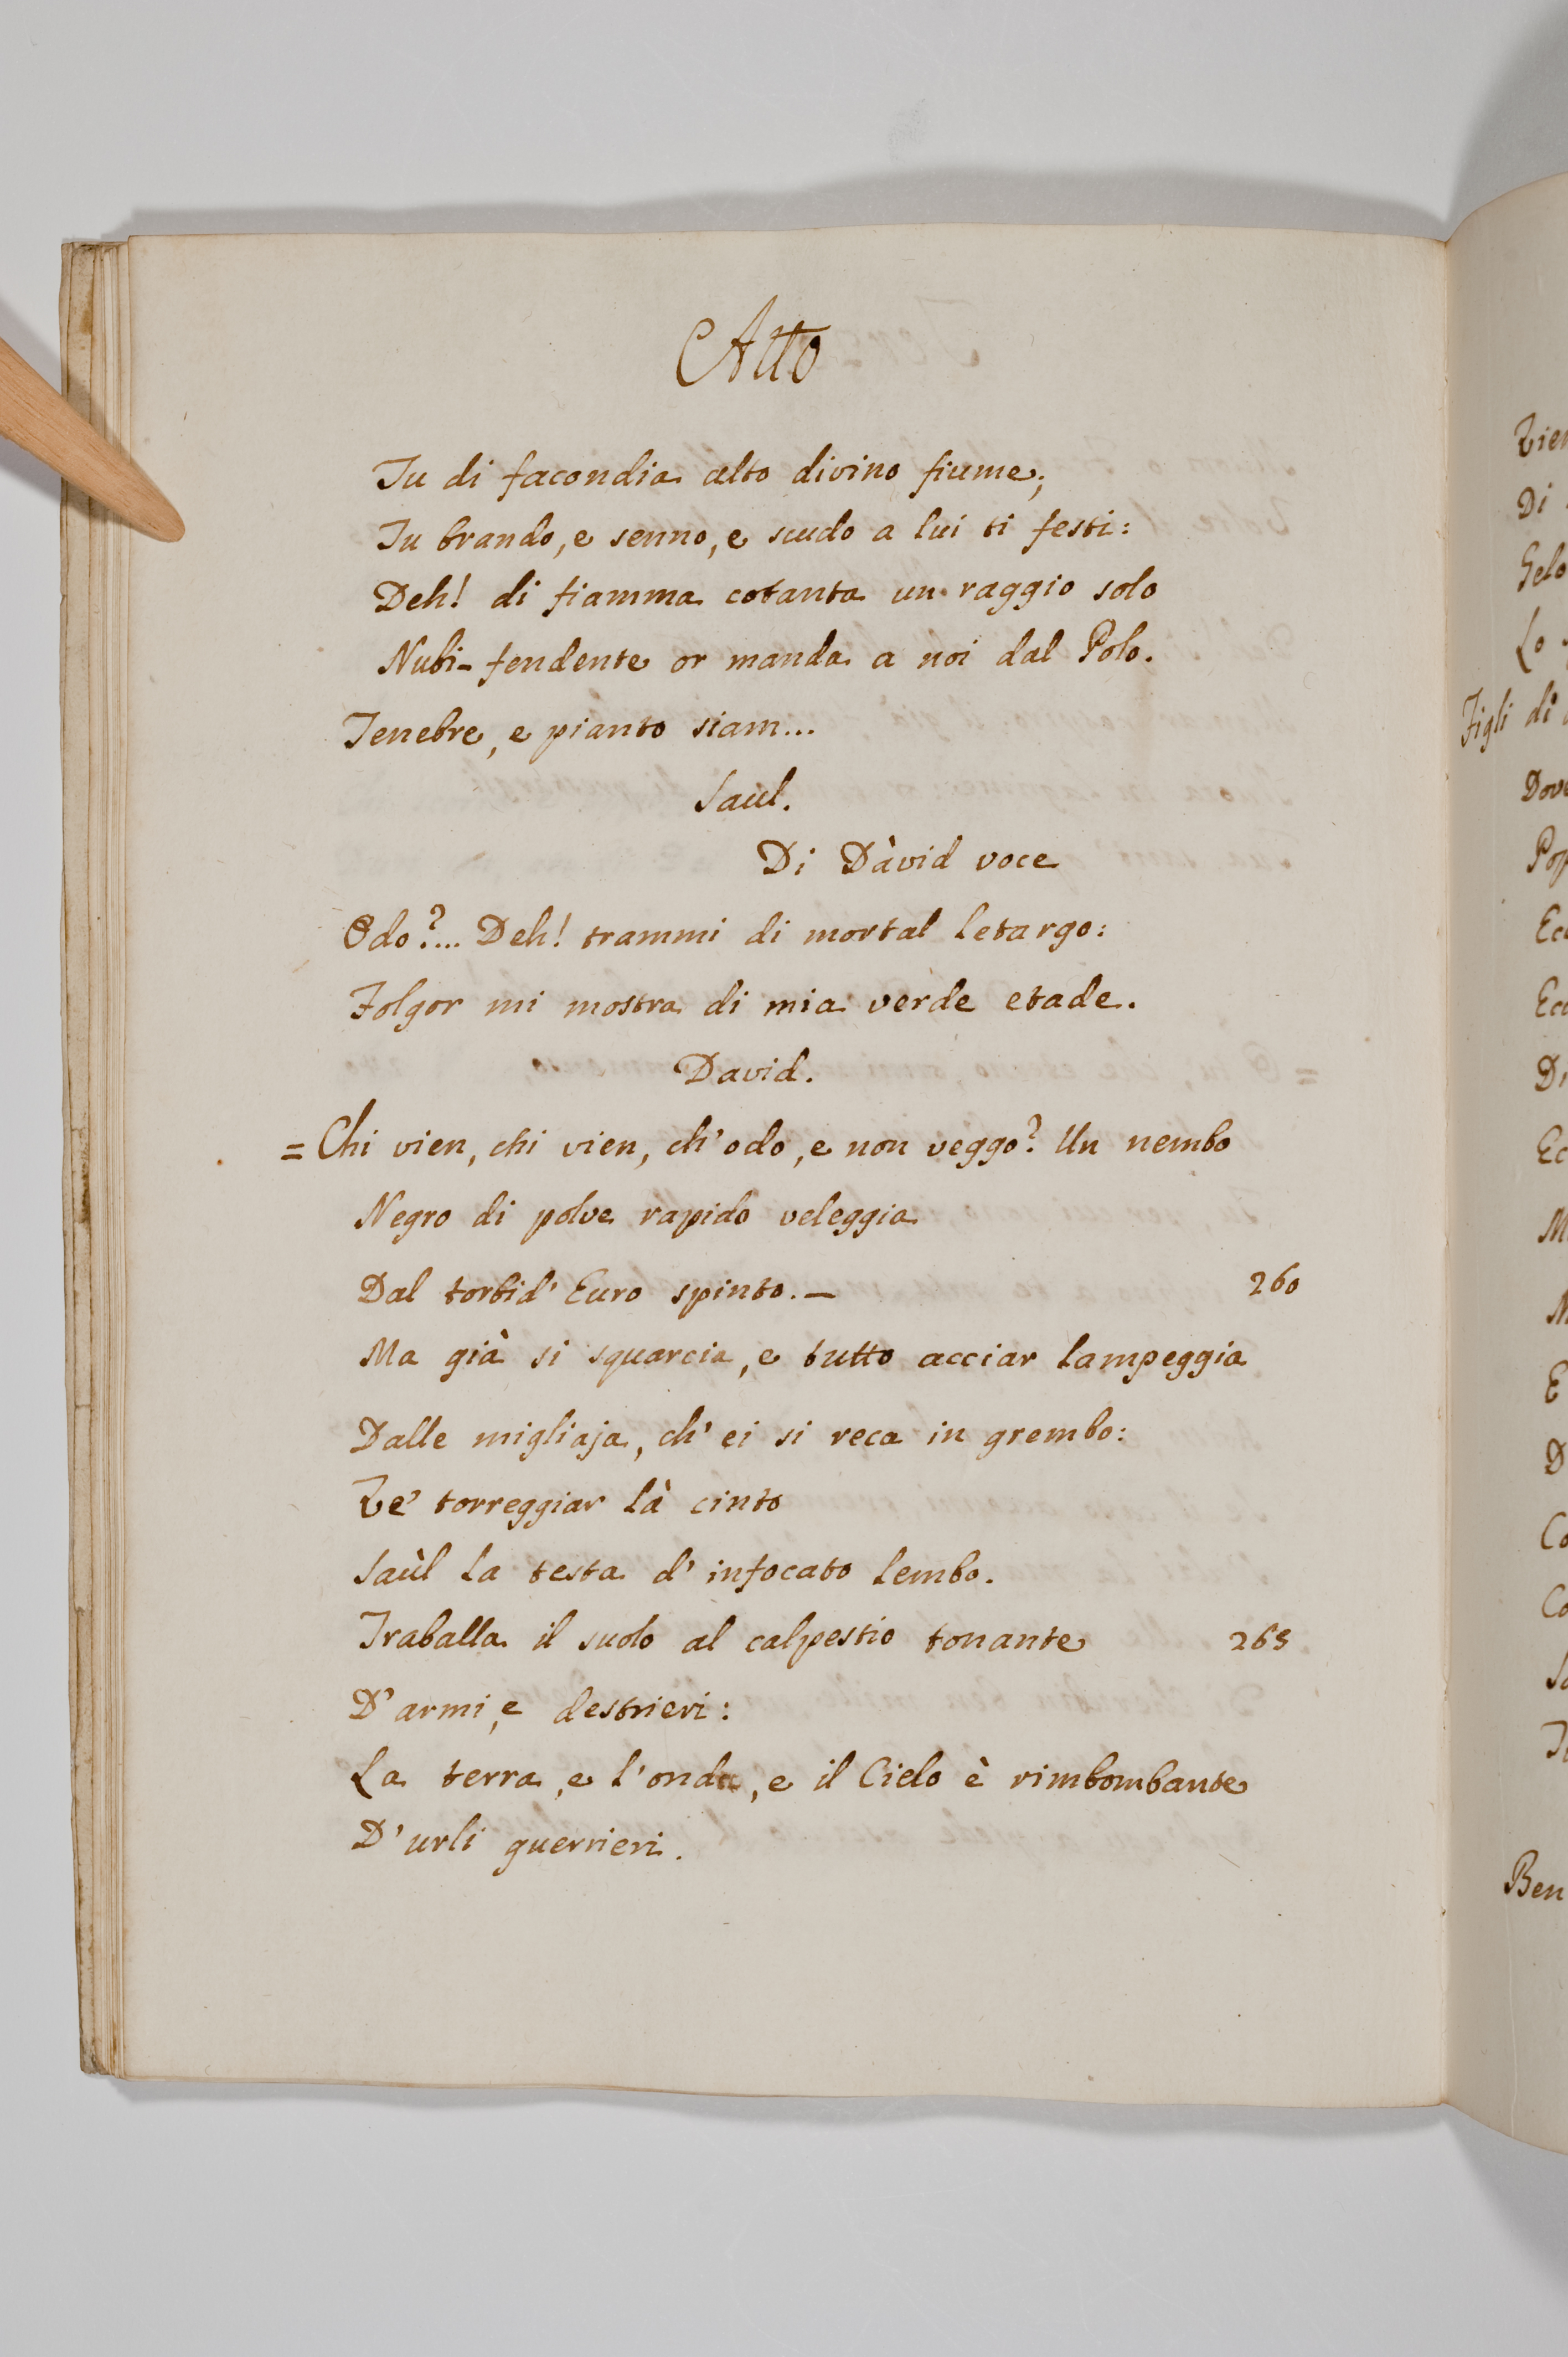 Atto
Tu di facondia alto divino fiume;
Tu brando, e senno, e scudo a lui ti festi:
Deh! di fiamma cotanta un raggio solo
Nubi-fendente or manda a noi dal Polo.
Tenebre, e pianto siam...
Saul.
Di Dàvid voce
Odo?... Deh! trammi di mortal letargo:
Folgor mi mostra di mia verde etade.
David.
= Chi vien, chi vien, ch'odo, e non veggo? Un nembo
Negro di polve rapido veleggia
Dal torbid' Euro spinto. — 260
Ma già si squarcia, e tutto acciar lampeggia
Dalle migliaja, ch' ei si reca in grembo:
Ve' torreggiar là cinto
Saùl la testa d' infocato lembo.
Traballa il suolo al calpestio tonante 265
D' armi, e destrieri:
La terra, e l'onda, e il Cielo è rimbombante
D' urli guerrieri.
Figli di
Dove
Ben